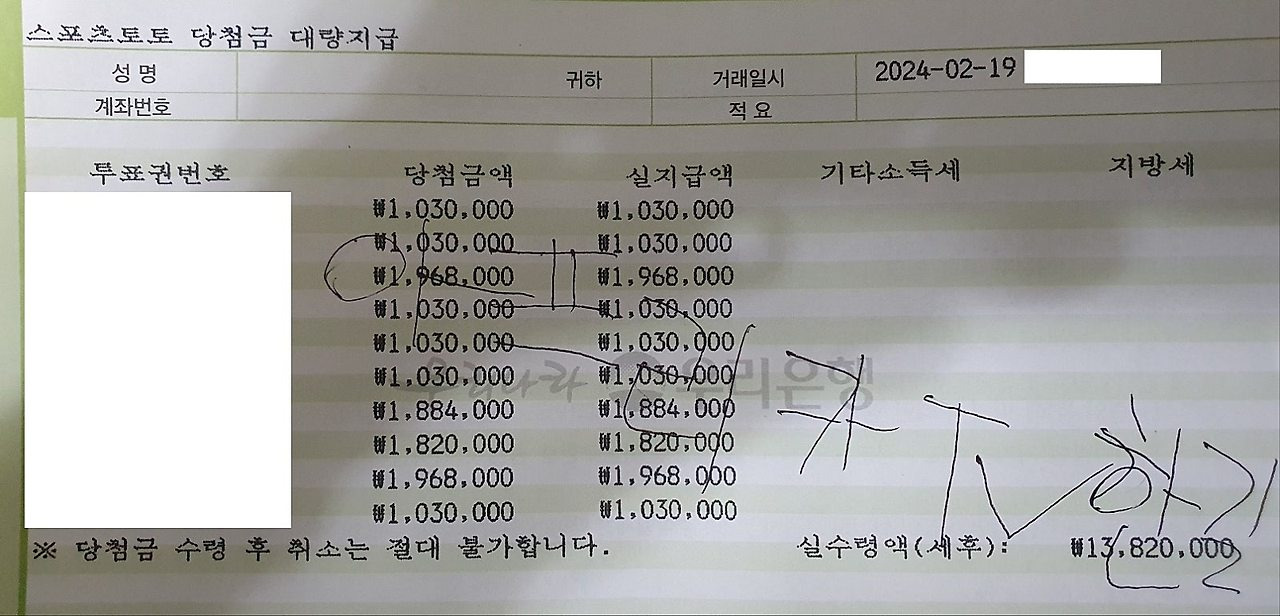 스포츠토토 당첨금 대량지급
성 명 귀하 거래일시 2024-02-19
계좌번호 적 요
투표권번호 당첨금액 실지급액 기타소득세 지방세
₩1,030,000 ₩1,030,000
₩1,030,000 ₩1,030,000
₩1,968,000 ₩1,968,000
₩1,030,000 ₩1,030,000
₩1,030,000 ₩1,030,000
₩1,030,000 ₩1,030,000
우리나라 우리은행
₩1,884,000 ₩1,884,000
₩1,820,000 ₩1,820,000
₩1,968,000 ₩1,968,000
₩1,030,000 ₩1,030,000
※ 당첨금 수령 후 취소는 절대 불가합니다. 실수령액(세후): ₩13,820,000